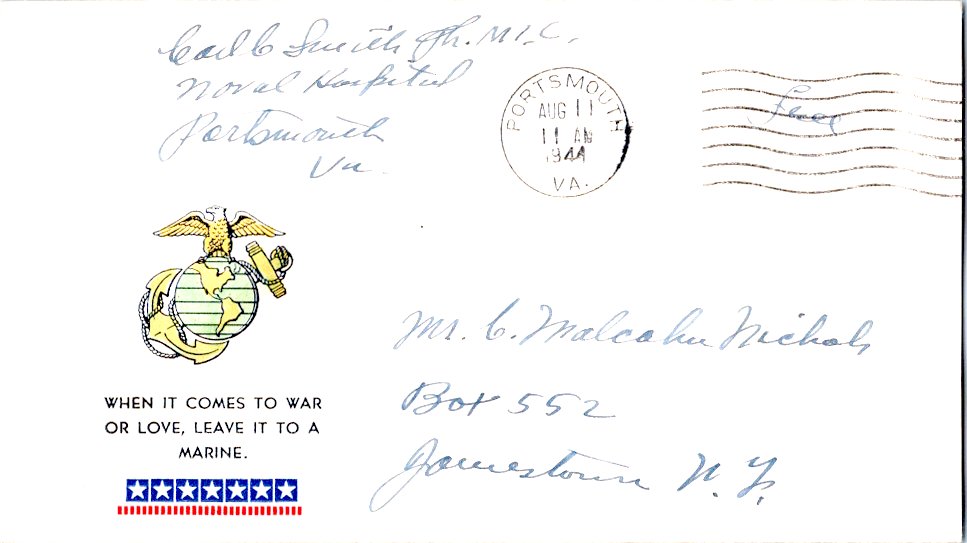 Carl C Smith Jr. M1.C.
Naval Hospital
Portsmouth
Va.
PORTSMOUTH
AUG 11
11 AM
1944
VA.
Free
Mr. C. Malcolm Nichols
Box 552
Jamestown N.Y.
WHEN IT COMES TO WAR
OR LOVE, LEAVE IT TO A
MARINE.